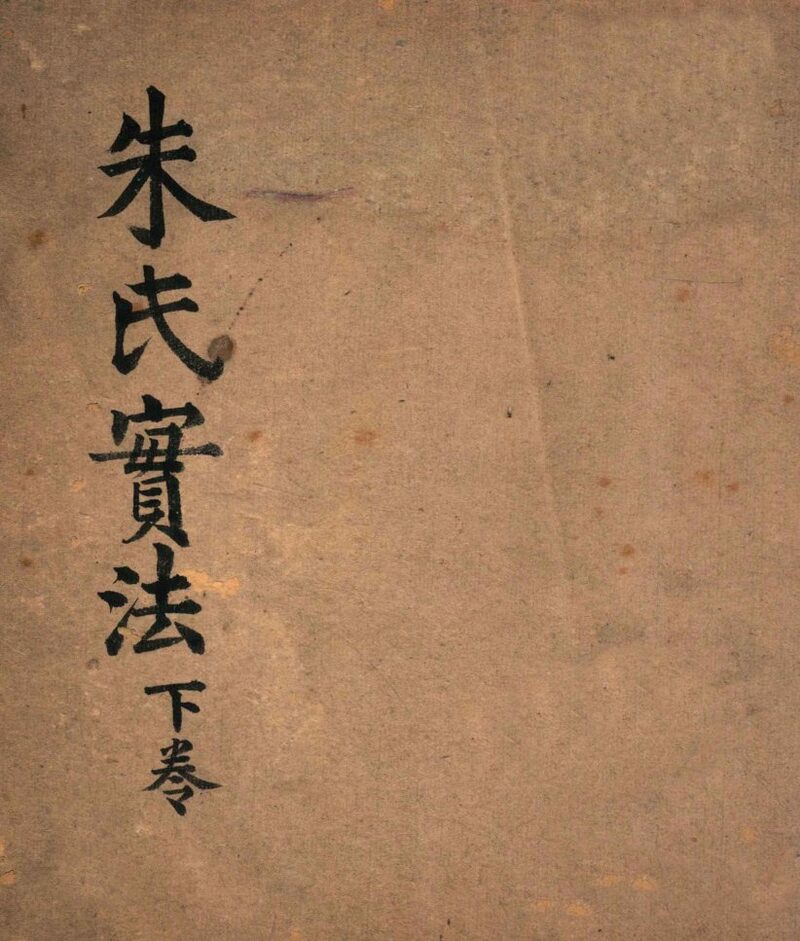 朱氏實法下卷